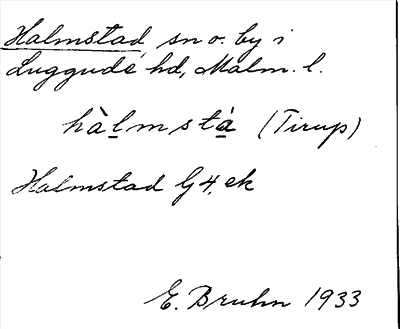 Halmstad, sn o. by i
Luggude hd, Malm. l.
hàlmstà (Tirup)
Halmstad G4, ek
E. Bruhn 1933